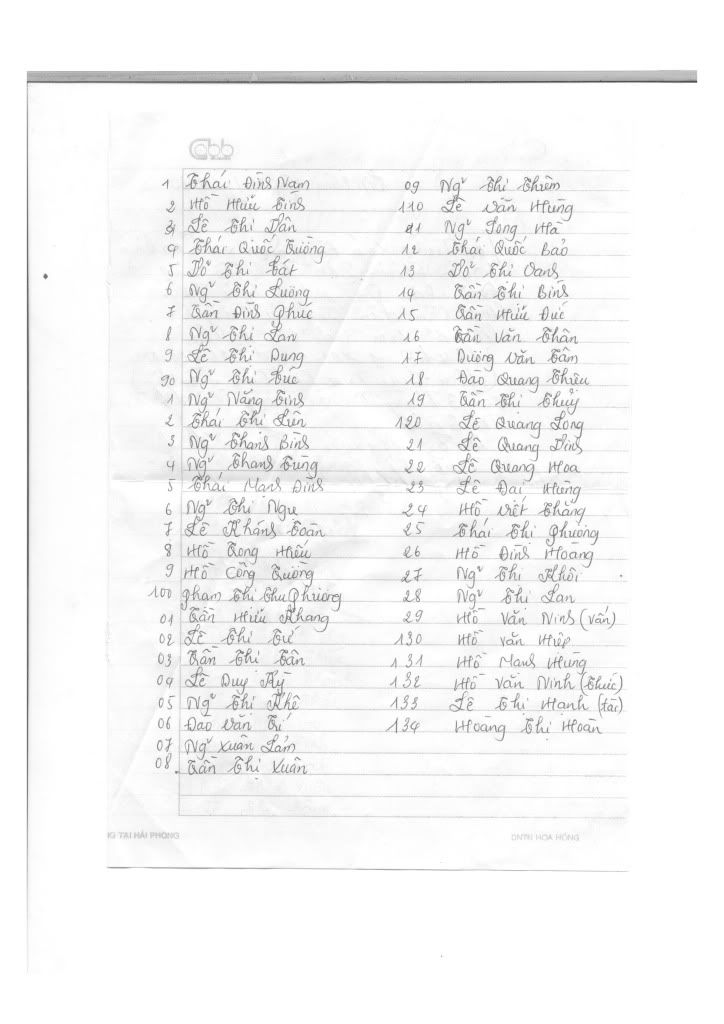 abb
1 Thái Đình Nam
2 Hồ Hữu Tình
3 Lê Thị Dần
4 Thái Quốc Trường
5 Đỗ Thị Tát
6 Ngũ Thị Lường
7 Trần Đình Phúc
8 Ngũ Thị Lan
9 Lê Thị Dung
90 Ngũ Thị Túc
1 Ngũ Năng Tình
2 Thái Thị Liên
3 Ngũ Thanh Bình
4 Ngũ Thanh Tùng
5 Thái Mạnh Đình
6 Ngũ Thị Ngụ
7 Lê Khánh Toàn
8 Hồ Trọng Hiếu
9 Hồ Công Trường
100 Phạm Thị Thu Phương
01 Trần Hữu Khang
02 Lê Thị Tứ
03 Trần Thị Tân
04 Lê Duy Kỳ
05 Ngũ Thị Khê
06 Đào Văn Tí
07 Ngũ Xuân Lâm
08 Trần Thị Xuân
09 Ngũ Thị Thiêm
110 Lê Văn Hùng
11 Ngũ Long Hà
12 Thái Quốc Bảo
13 Đỗ Thị Oanh
14 Trần Thị Bình
15 Trần Hữu Đức
16 Trần Văn Thân
17 Dương Văn Tâm
18 Đào Quang Thiêu
19 Trần Thị Thủy
120 Lê Quang Long
21 Lê Quang Vinh
22 Lê Quang Hoa
23 Lê Đại Hùng
24 Hồ Viết Thắng
25 Thái Thị Phương
26 Hồ Đình Hoàng
27 Ngũ Thị Khôi
28 Ngũ Thị Lan
29 Hồ Văn Ninh (Vấn)
130 Hồ Văn Hiệp
131 Hồ Mạnh Hùng
132 Hồ Văn Ninh (Thúc)
133 Lê Thị Hạnh (tài)
134 Hoàng Thị Hoàn
NG TẠI HẢI PHÒNG
DNTN HOA HỒNG